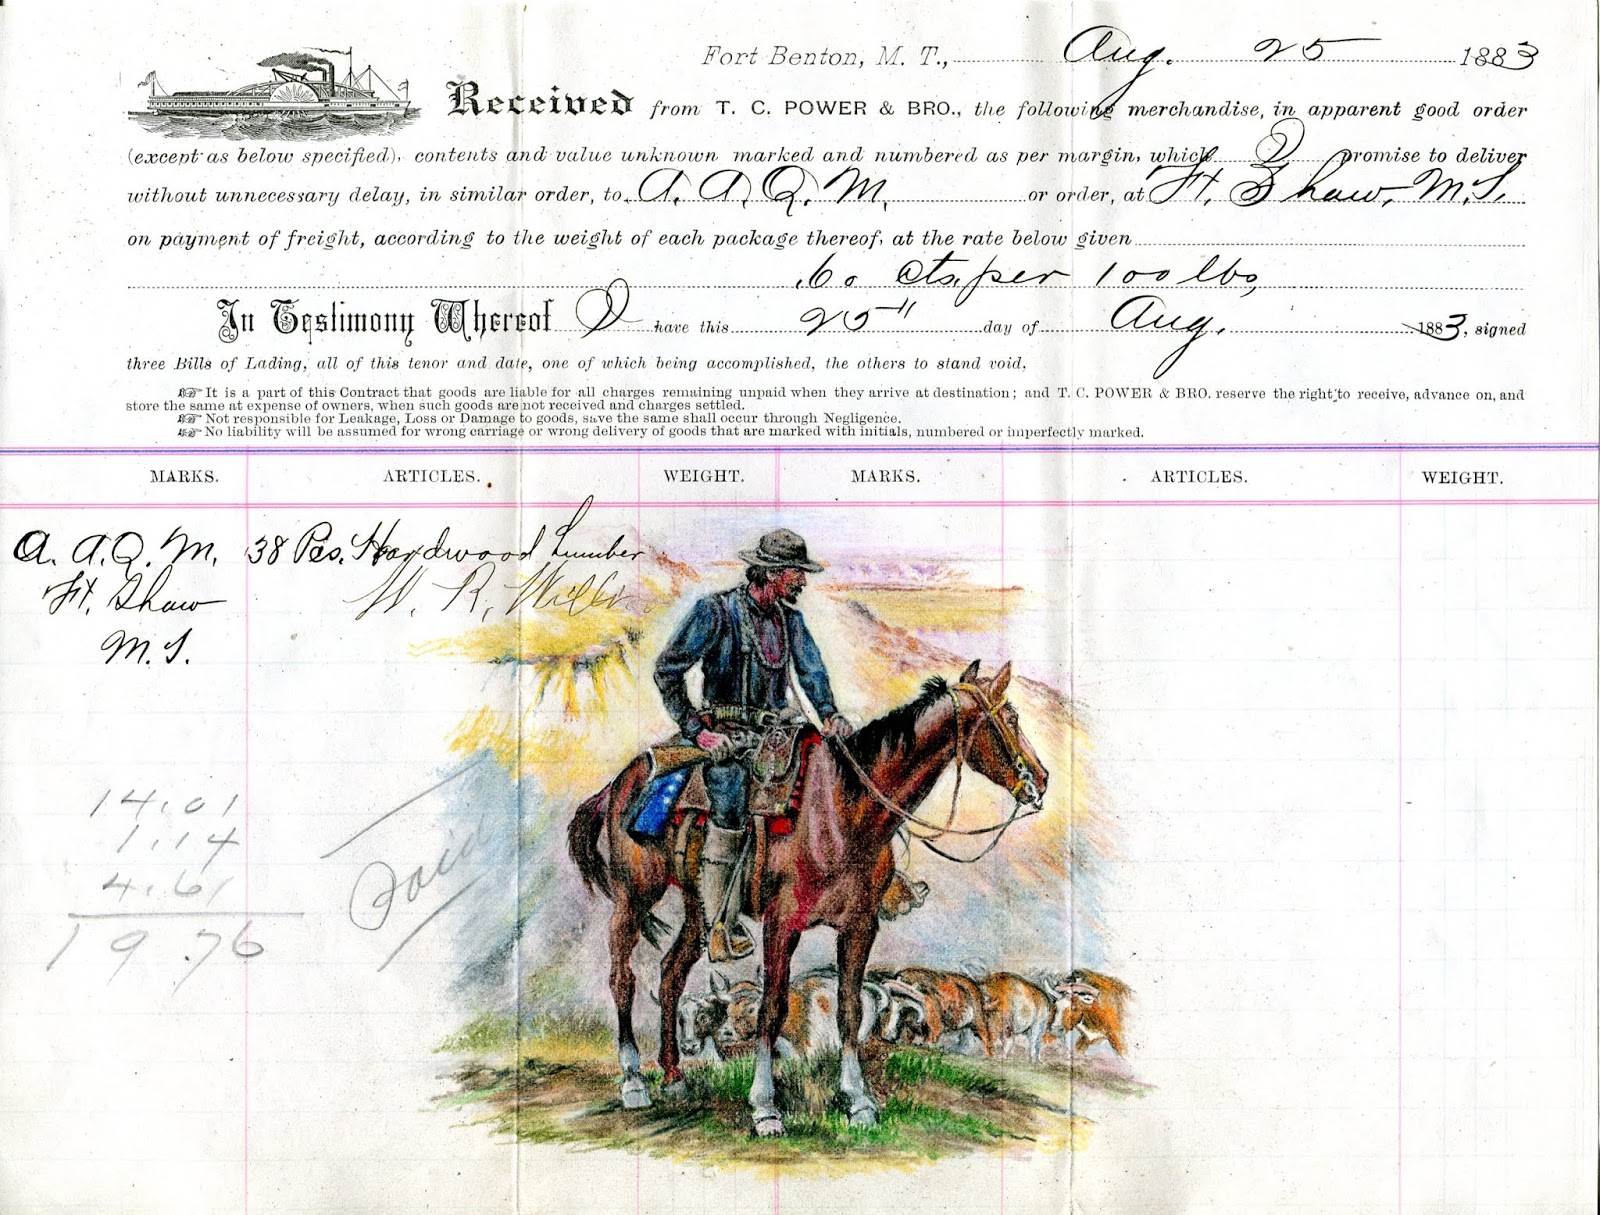 Fort Benton, M. T., Aug. 25 1883
Received from T. C. POWER & BRO., the following merchandise, in apparent good order
(except as below specified), contents and value unknown marked and numbered as per margin, which I promise to deliver
without unnecessary delay, in similar order, to A. A. Q. M. or order, at Ft. Shaw, M.T.
on payment of freight, according to the weight of each package thereof, at the rate below given
.60 cts. per 100 lbs,
In Testimony Whereof I have this 25" day of Aug. 1883, signed
three Bills of Lading, all of this tenor and date, one of which being accomplished, the others to stand void.
It is a part of this Contract that goods are liable for all charges remaining unpaid when they arrive at destination; and T. C. POWER & BRO. reserve the right to receive, advance on, and
store the same at expense of owners, when such goods are not received and charges settled.
Not responsible for Leakage, Loss or Damage to goods, save the same shall occur through Negligence.
No liability will be assumed for wrong carriage or wrong delivery of goods that are marked with initials, numbered or imperfectly marked.
MARKS. ARTICLES. WEIGHT. MARKS. ARTICLES. WEIGHT.
A. A. Q. M. 38 Pcs. Hardwood Lumber
Ft. Shaw W. R.
M. T.
14.01
1.14
4.61
19.76
Paid